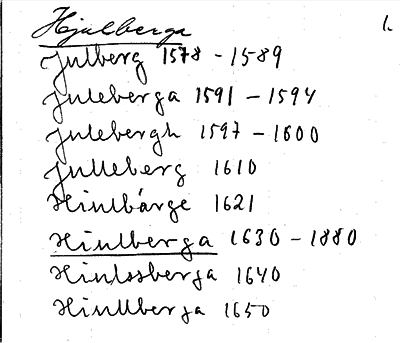 Hjulberga 1.
Julberg 1578 - 1589
Juleberga 1591 - 1594
Julebergh 1597 - 1600
Julleberg 1610
Hiulbärge 1621
Hiulberga 1630 - 1880
Hiulssberga 1640
Hiullberga 1650